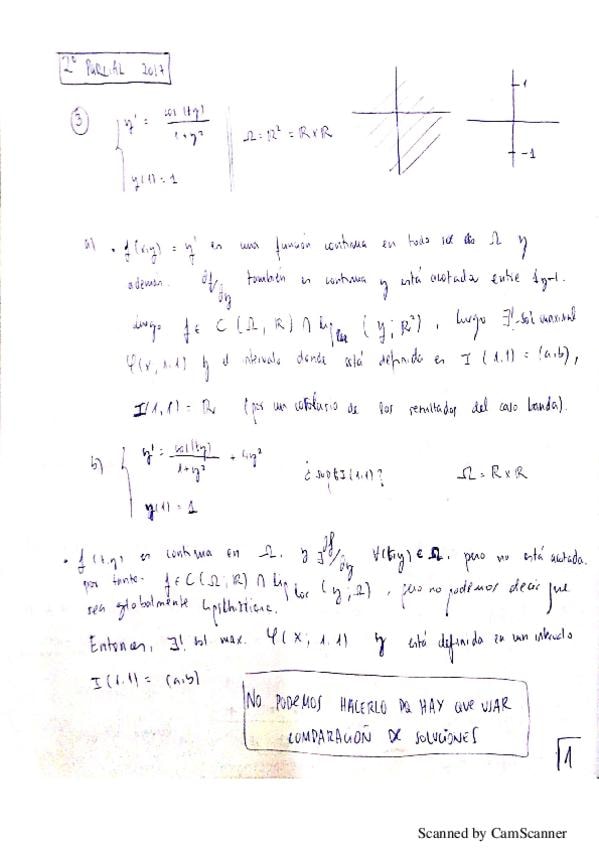 2º PARCIAL 2017
③ { y' = cos(ty) / 1+y² Ω = R² = R×R
y(1) = 1
1
-1
a) • f(x,y) = y' es una función continua en todo Ω y
además ∂f/∂y también es continua y está acotada entre 1 y -1.
Luego f ∈ C(Ω, R) ∩ Lip_loc (y; R²), luego ∃! sol maximal
φ(x,1,1) y el intervalo donde está definida es I(1,1) = (a,b),
I(1,1) = R (por un corolario de los resultados del caso banda).
b) { y' = cos(ty) / 1+y² + 4y² ¿sup I(1,1)? Ω = R×R
y(1) = 1
• f(t,y) es continua en Ω, y ∃ ∂f/∂y ∀(t,y) ∈ Ω, pero no está acotada.
por tanto f ∈ C(Ω; R) ∩ Lip_loc (y; Ω), pero no podemos decir que
sea globalmente Lipschitziana.
Entonces, ∃! sol max. φ(x; 1,1) y está definida en un intervalo
I(1,1) = (a,b)
NO PODEMOS HACERLO PQ HAY QUE USAR
COMPARACIÓN DE SOLUCIONES
1
Scanned by CamScanner